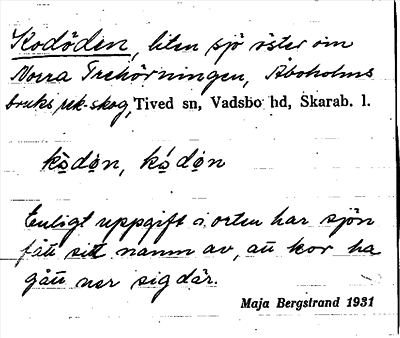 Kodöden, liten sjö öster om
Norra Trehörningen, Åboholms
bruks rek.-skog, Tived sn, Vadsbo hd, Skarab. l.
kòdøn, kódøn
Enligt uppgift å orten har sjön
fått sitt namn av, att kor ha
gått ner sig där.
Maja Bergstrand 1931